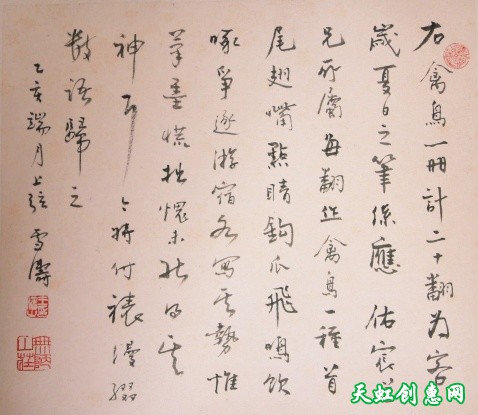 右禽鳥一冊計二十翻為客
歲夏日之筆係應佑宸
兄所屬每翻作禽鳥一種首
尾翅嘴點睛鉤爪飛鳴飲
啄爭逐游宿各寫其勢惟
筆墨慌拙愧未能得其
神耳今將付裱漫綴
數語歸之
乙亥端月上弦雪濤
天虹创意网